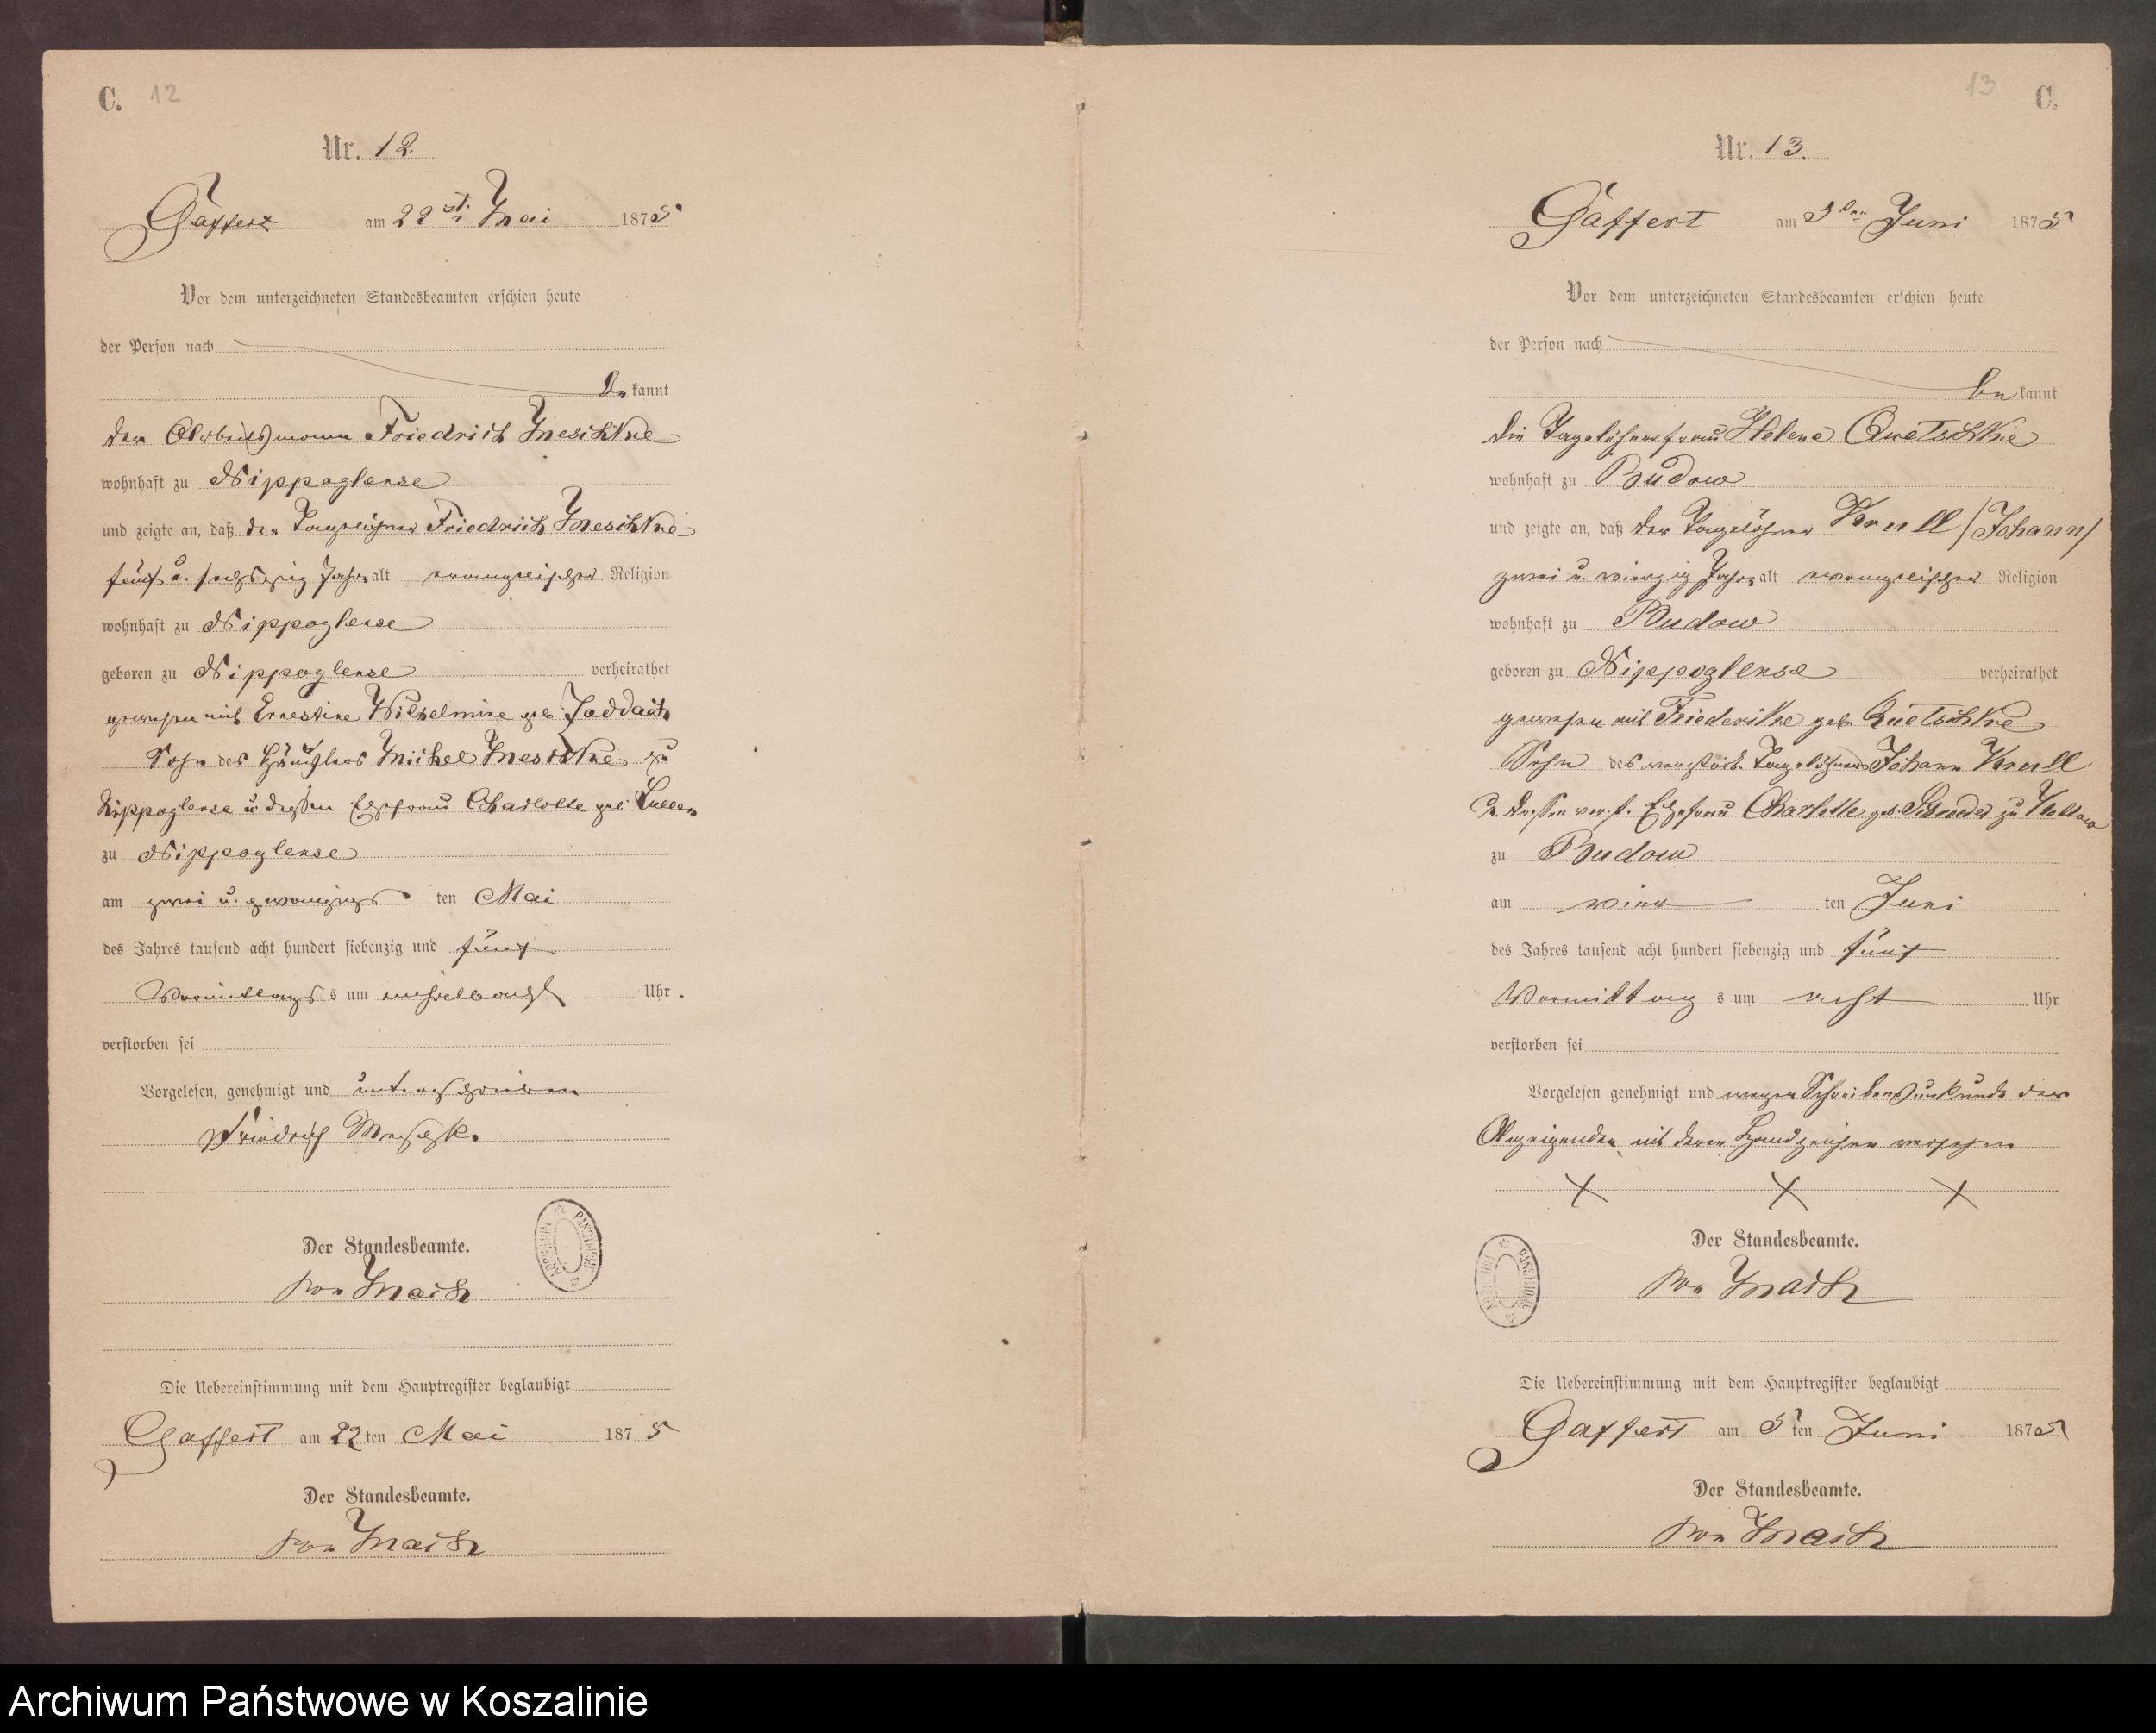 C. 12
Nr. 12.
Gaffert am 22ten Mai 1875
Vor dem unterzeichneten Standesbeamten erschien heute
der Person nach
bekannt
der Arbeitsmann Friedrich Meschke
wohnhaft zu Nippoglense
und zeigte an, daß der Tagelöhner Friedrich Meschke
fünf u. sechszig Jahr alt evangelischer Religion
wohnhaft zu Nippoglense
geboren zu Nippoglense verheirathet
gewesen mit Ernestine Wilhelmine geb.
Sohn des Häuslers Michel Meschke zu
Nippoglense u. dessen Ehefrau Charlotte geb.
zu Nippoglense
am zwei u. zwanzigsten Mai
des Jahres tausend acht hundert siebenzig und fünf
Vormittags um Uhr.
verstorben sei
Vorgelesen, genehmigt und unterschrieben
Friedrich Meschke
Der Standesbeamte.
von
Die Uebereinstimmung mit dem Hauptregister beglaubigt
Gaffert am 22ten Mai 1875
Der Standesbeamte.
von
13 C.
Nr. 13.
Gaffert am 5ten Juni 1875
Vor dem unterzeichneten Standesbeamten erschien heute
der Person nach
bekannt
die Tagelöhnerfrau Helene Quetschke
wohnhaft zu Budow
und zeigte an, daß der Tagelöhner Krull /Johann/
zwei u. vierzig Jahr alt evangelischer Religion
wohnhaft zu Budow
geboren zu Nippoglense verheirathet
gewesen mit Friederike geb. Quetschke
Sohn des verstorb. Tagelöhners Johann Krull
u. dessen verst. Ehefrau Charlotte geb. Schroeder zu
zu Budow
am vierten Juni
des Jahres tausend acht hundert siebenzig und fünf
Vormittags um acht Uhr
verstorben sei
Vorgelesen genehmigt und wegen Schreibensunkunde der
Anzeigenden mit deren Handzeichen versehen
X X X
Der Standesbeamte.
von
Die Uebereinstimmung mit dem Hauptregister beglaubigt
Gaffert am 5ten Juni 1875
Der Standesbeamte.
von
Archiwum Państwowe w Koszalinie